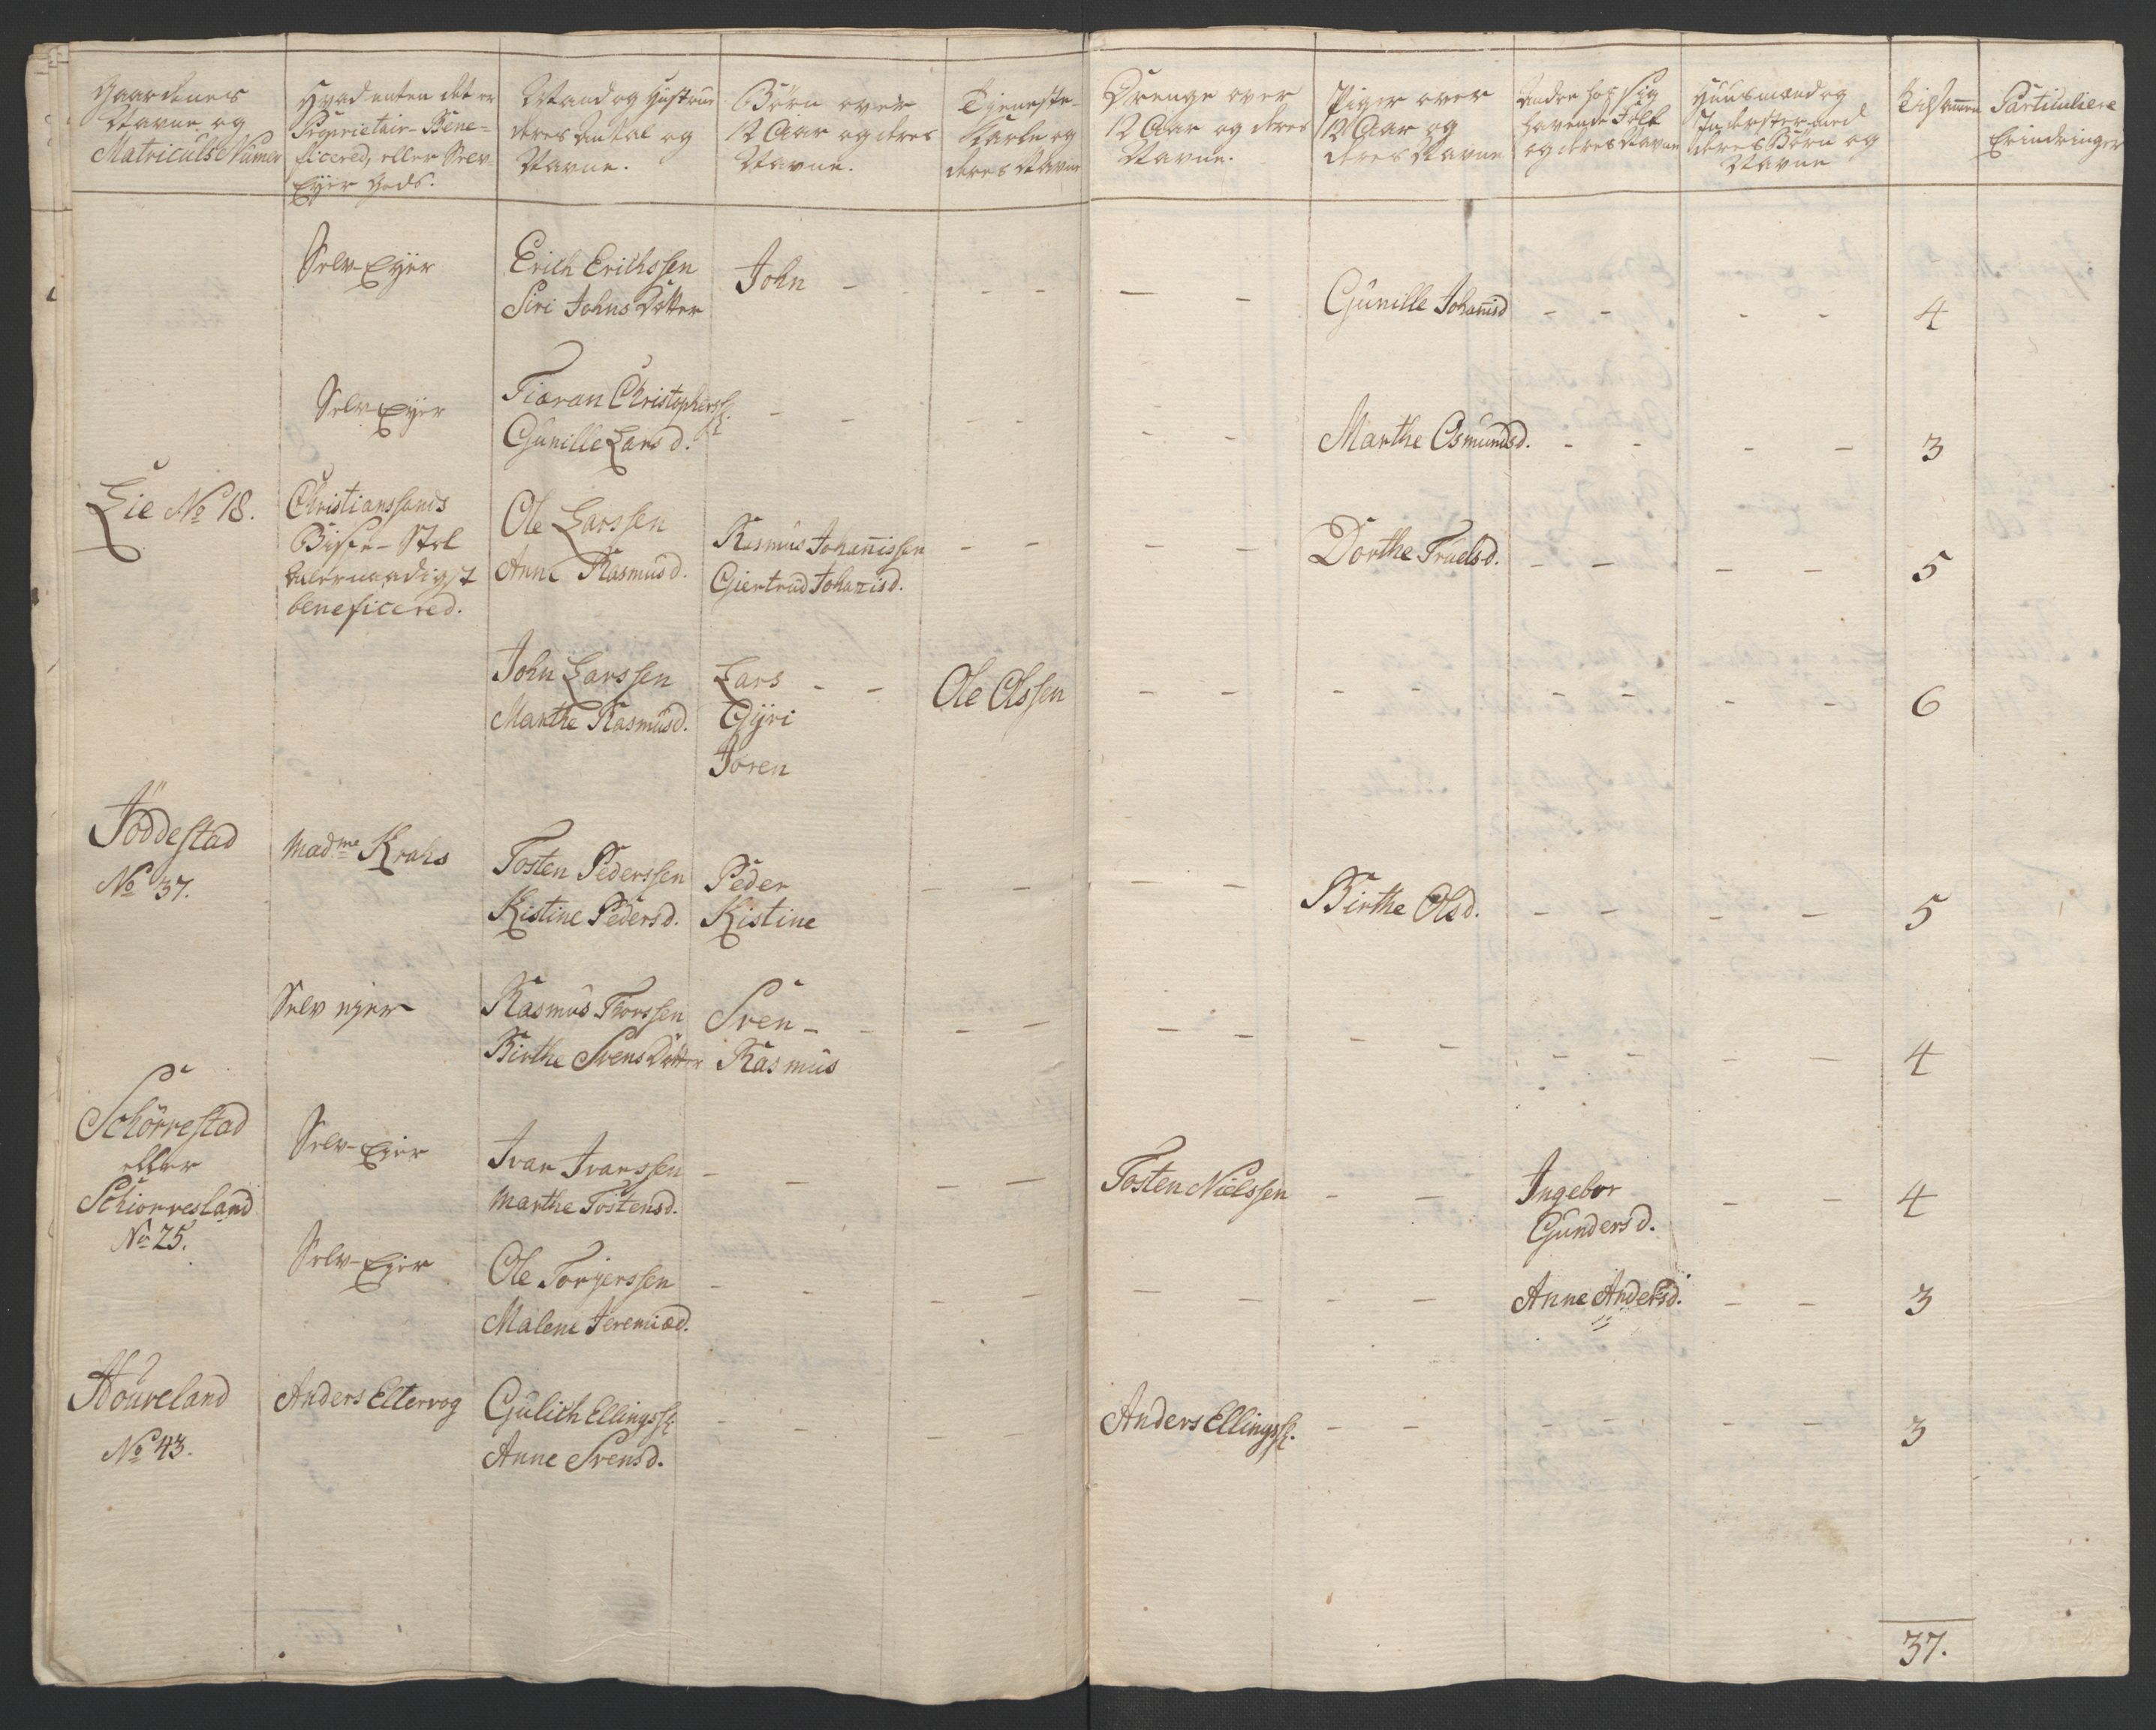 Gaardenes
Navne og
Matriculs Numer
Hvad enten det er
Proprietair- Bene-
ficered, eller Selv-
Eyer Gods.
Mand og Hustrue
deres Antal og
Navne.
Börn over
12 Aar og deres
Navne.
Tjeneste-
Karle og
deres Navne
Drenge over
12 Aar og deres
Navne.
Piger over
12 Aar og
deres Navne
Andre hos sig
havende Folk
og deres Navne
Huusmænd og
Inderster med
deres Börn og
Navne
Tilsamen
Particuliere
Erindringer
Selv-Eyer
Erich Erichssen
Siri Johns Dotter
John - - -
- -
Gunille Johanisd - -
- -
4
Selv-Eyer
Tiøran Christophers:
Gunille Lars d.
- -
- -
Marthe Osmundsd. - -
- -
3
Lie No 18.
Christianssands
Bispe-Stol
allernaadigst
beneficered.
Ole Larssen
Anne Rasmusd.
Rasmus Johanissen
Giertrud Johanisd.
- -
- -
Dorthe Truelsd. - -
- -
5
John Larssen
Marthe Rasmusd.
Lars - -
Gyri
Joren
Ole Olssen
- - - - - -
- -
6
Jöddestad
No 37.
Madme Krahs
Tosten Pederssen
Kistine Pedersd.
Peder
Kistine
- -
- -
Birthe Olsd. - -
- -
5
Selv eyer
Rasmus Thorssen
Birthe Svens Dotter
Sven -
Rasmus
- -
- - - - - -
- -
4
Schörrestad
eller
Schiorresland
No 25.
Selv-Eyer
Ivar Ivarssen
Marthe Tostensd.
- - - -
Tosten Nielssen - -
Ingebor
Gundersd.
- -
4
Selv-Eyer
Ole Torgerssen
Malene Jeremiæd.
- - - -
- - - -
Anne Andersd. - -
3
Houveland
No 43.
Anders Eltervog
Gulich Ellings:
Anne Svensd.
- - - -
Anders Ellings:
- - - - - -
3
37.